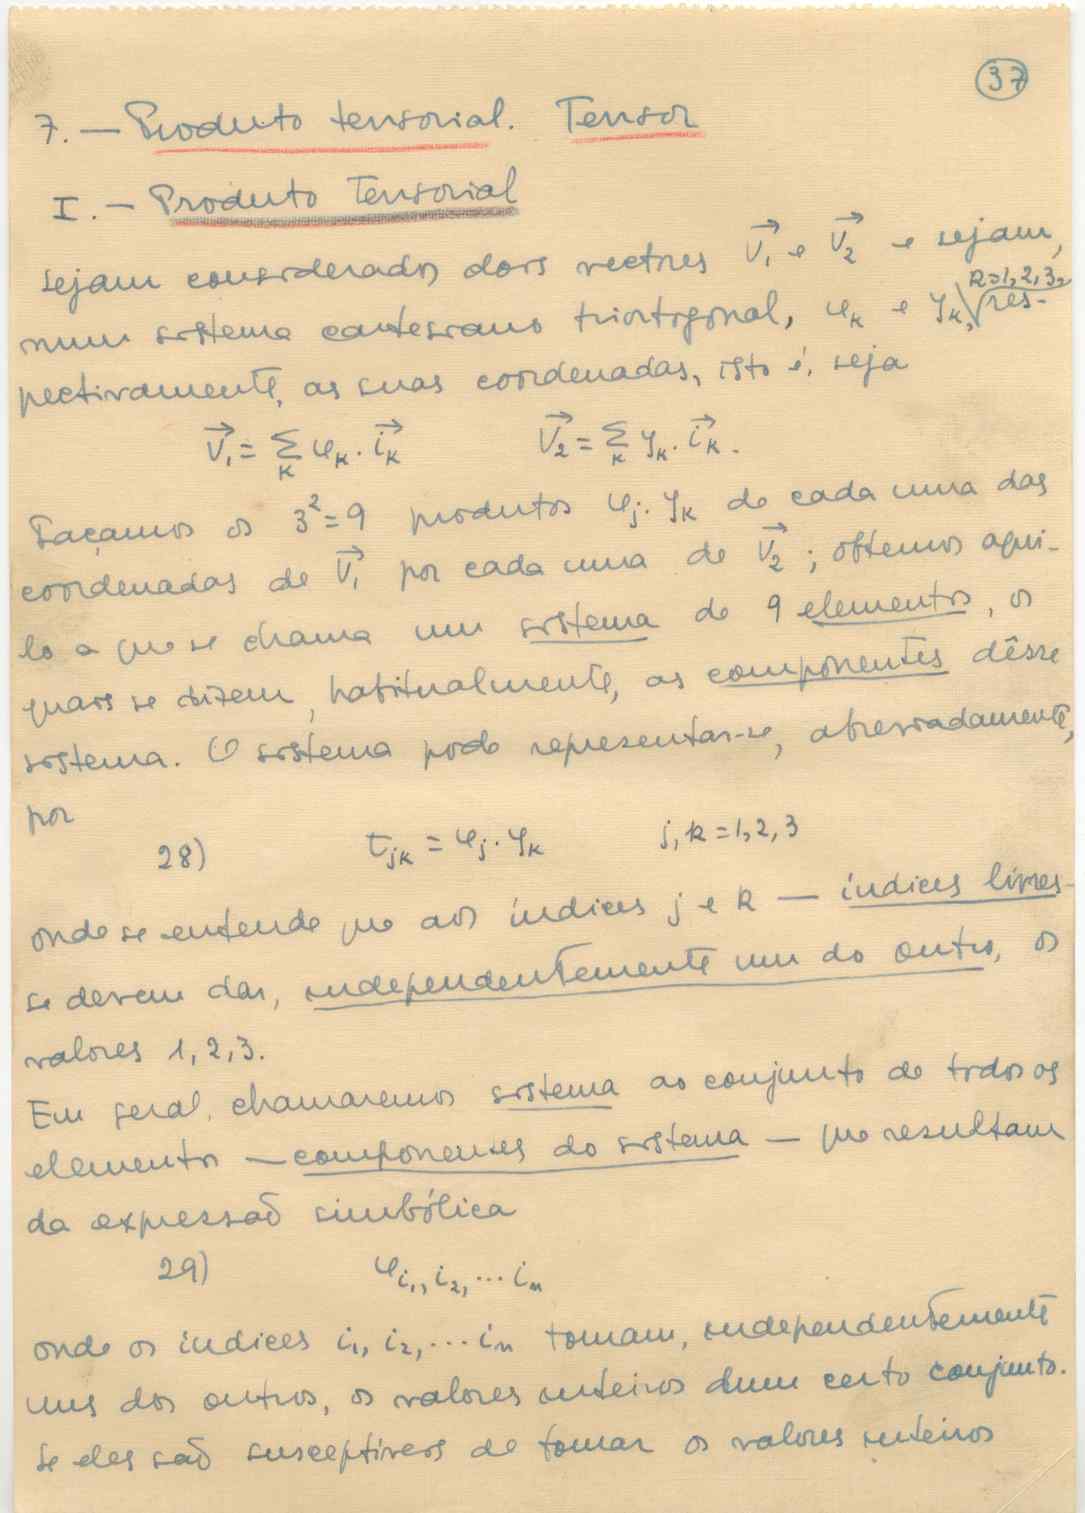 37
7. — Produto tensorial. Tensor
I. — Produto Tensorial
Sejam considerados dois vectores V⃗₁ e V⃗₂ e sejam,
num sistema cartesiano triortogonal, φₖ e ψₖ, k=1,2,3, res-
pectivamente, as suas coordenadas, isto é, seja
V⃗₁ = Σₖ φₖ. i⃗ₖ V⃗₂ = Σₖ ψₖ. i⃗ₖ.
Façamos os 3²=9 produtos φⱼ. ψₖ de cada uma das
coordenadas de V⃗₁ por cada uma de V⃗₂; obtemos aqui-
lo a que se chama um sistema de 9 elementos, os
quais se dizem, habitualmente, as componentes dêsse
sistema. O sistema pode representar-se, abreviadamente,
por
28) τⱼₖ = φⱼ. ψₖ j, k = 1, 2, 3
onde se entende que aos índices j e k — índices livres -
se devem dar, independentemente um do outro, os
valores 1, 2, 3.
Em geral, chamaremos sistema ao conjunto de todos os
elementos — componentes do sistema — que resultam
da expressão simbólica
29) φ i₁, i₂, ... iₙ
onde os índices i₁, i₂, ... iₙ tomam, independentemente
uns dos outros, os valores inteiros dum certo conjunto.
Se eles são susceptíveis de tomar os valores inteiros